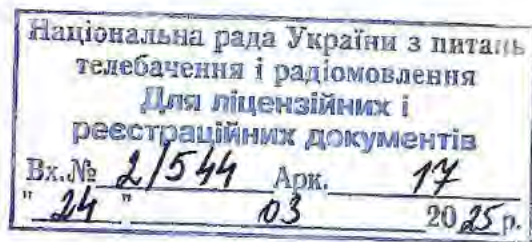 Національна рада України з питань
телебачення і радіомовлення
Для ліцензійних і
реєстраційних документів
Вх.№ 2/544 Арк. 17
" 24 " 03 2025 р.